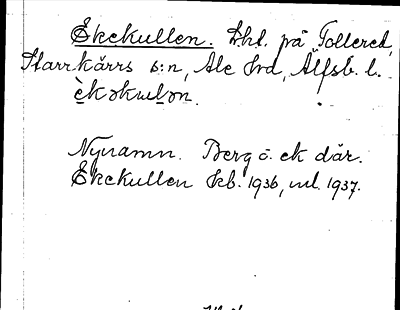 Ekekullen. Lht. på Tollered,
Starrkärrs s:n, Ale hrd, Älfsb. l.
 èkəkulən.
Nynamn. Berg o. ek där.
Ekekullen kb. 1936, ml. 1937.